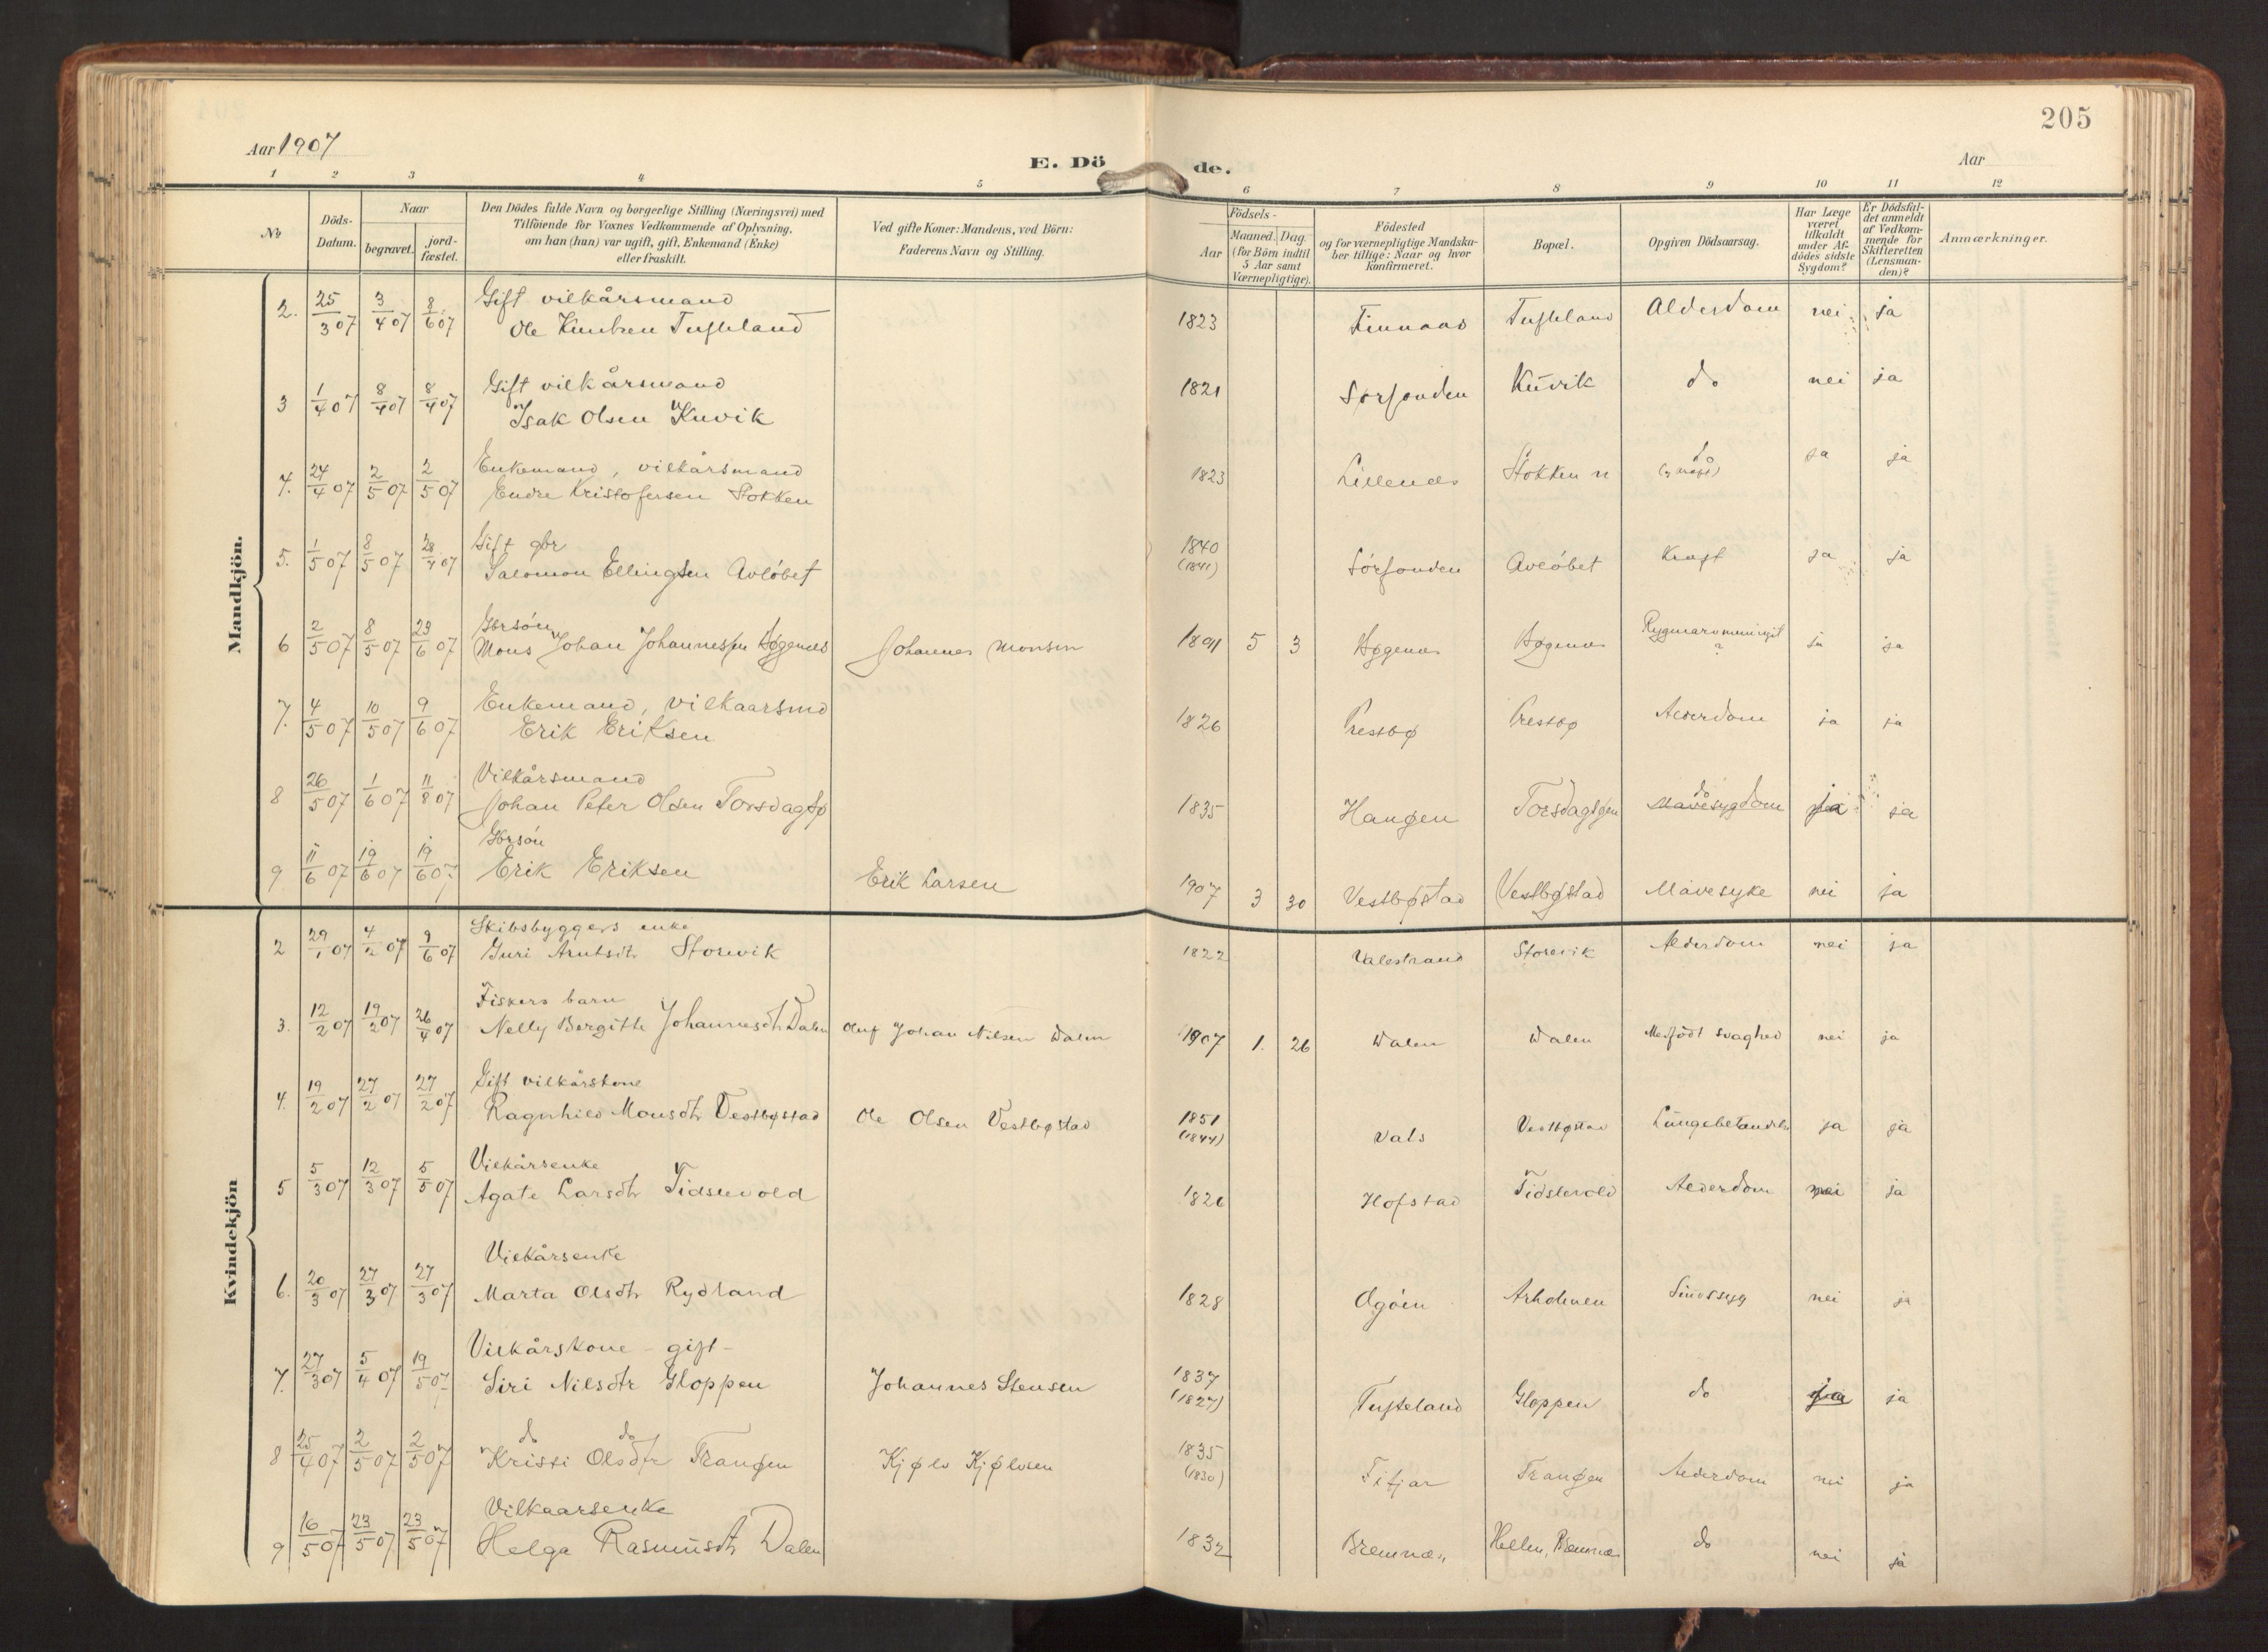 205
Aar 1907
E. Dö
de.
Aar
1 2 3 4 5 6 7 8 9 10 11 12
No
Döds-
Datum.
Naar
begravet.
jord-
fæstet.
Den Dödes fulde Navn og borgerlige Stilling (Næringsvei) med
Tilföiende for Voxnes Vedkommende af Oplysning,
om han (hun) var ugift, gift, Enkemand (Enke)
eller fraskilt.
Ved gifte Koner: Mandens, ved Börn:
Faderens Navn og Stilling.
Födsels-
Aar
Maaned. Dag.
(for Börn indtil
5 Aar samt
Værnepligtige).
Födested
og for værnepligtige Mandska-
ber tillige: Naar og hvor
konfirmeret.
Bopæl.
Opgiven Dödsaarsag.
Har Læge
været
tilkaldt
under Af-
dödes sidste
Sygdom?
Er Dödsfal-
det anmeldt
af Vedkom-
mende for
Skifteretten
(Lensman-
den)?
Anmærkninger.
Mandkjön.
2. 25/3 07 3/4 07 8/6 07 Gift vilkårsmand
Ole Knutsen Tufteland 1823 Finnaas Tufteland Alderdom nei ja
3 1/4 07 8/4 07 8/4 07 Gift vilkårsmand
Isak Olsen Kuvik 1821 Sørfonden Kuvik do nei ja
4. 24/4 07 2/5 07 2/5 07 Enkemand, vilkårsmand
Endre Kristofersen Stokken 1823 Lillenes Stokken n do ja ja
5. 1/5 07 8/5 07 28/7 07 Gift gbr
Salomon Ellingsen Avløbet 1840
(1841) Sørfonden Avløbet Kræft ja ja
6 2/5 07 8/5 07 23/6 07 Gbrsøn
Mons Johan Johannessen Høgenes Johannes Monsen 1891 5 3 Høgenes Høgenes Rygmarvmeningit
? ja ja
7. 4/5 07 10/5 07 9/6 07 Enkemand, vilkaarsmd
Erik Eriksen 1826 Prestbø Prestbø Alderdom ja ja
8 26/5 07 1/6 07 11/8 07 Vilkårsmand
Johan Peter Olsen Torsdagsø 1835 Hangøen Torsdagsøen do
Mavesygdom ja ja
9 11/6 07 19/6 07 19/6 07 Gbrsøn
Erik Eriksen Erik Larsen 1907 3 30 Vestbøstad Vestbøstad Mavesyke nei ja
Kvindekjön
2 29/1 07 4/2 07 9/6 07 Skibsbyggers enke
Guri Arntsdtr Storevik 1822 Valestrand Storevik Alderdom nei ja
3. 12/2 07 19/2 07 26/4 07 Fiskers barn
Nelly Bergitte Johannesdtr Dalen Oluf Johan Nilsen Dalen 1907 1. 26 Dalen Dalen Medfødt svaghed nei ja
4. 19/2 07 27/2 07 27/2 07 Gift vilkårskone
Ragnhild Monsdtr Vestbøstad Ole Olsen Vestbøstad 1851
(1844) Vals Vestbøstad Lungebetændelse ja ja
5 5/3 07 12/3 07 5/5 07 Vilkårsenke
Agate Larsdtr Tidslevold 1826 Hofstad Tidslevold Alderdom nei ja
6. 20/3 07 27/3 07 27/3 07 Vilkårsenke
Marta Olsdtr Rydland 1828 Øgøien Arholmen Sindssyg nei ja
7. 27/3 07 5/4 07 19/5 07 Vilkårskone - gift -
Siri Nilsdtr Gloppen Johannes Stensen 1837
(1827) Tufteland Gloppen do ja ja
8 25/4 07 2/5 07 2/5 07 do do
Kristi Olsdtr Trangøen Kjølv Kjølvsen 1835
(1830) Fitjar Trangøen Alderdom nei ja
9 16/5 07 23/5 07 23/5 07 Vilkaarsenke
Helga Rasmusdtr Dalen 1832 Bremnæs Hellen, Bremnæs do nei ja